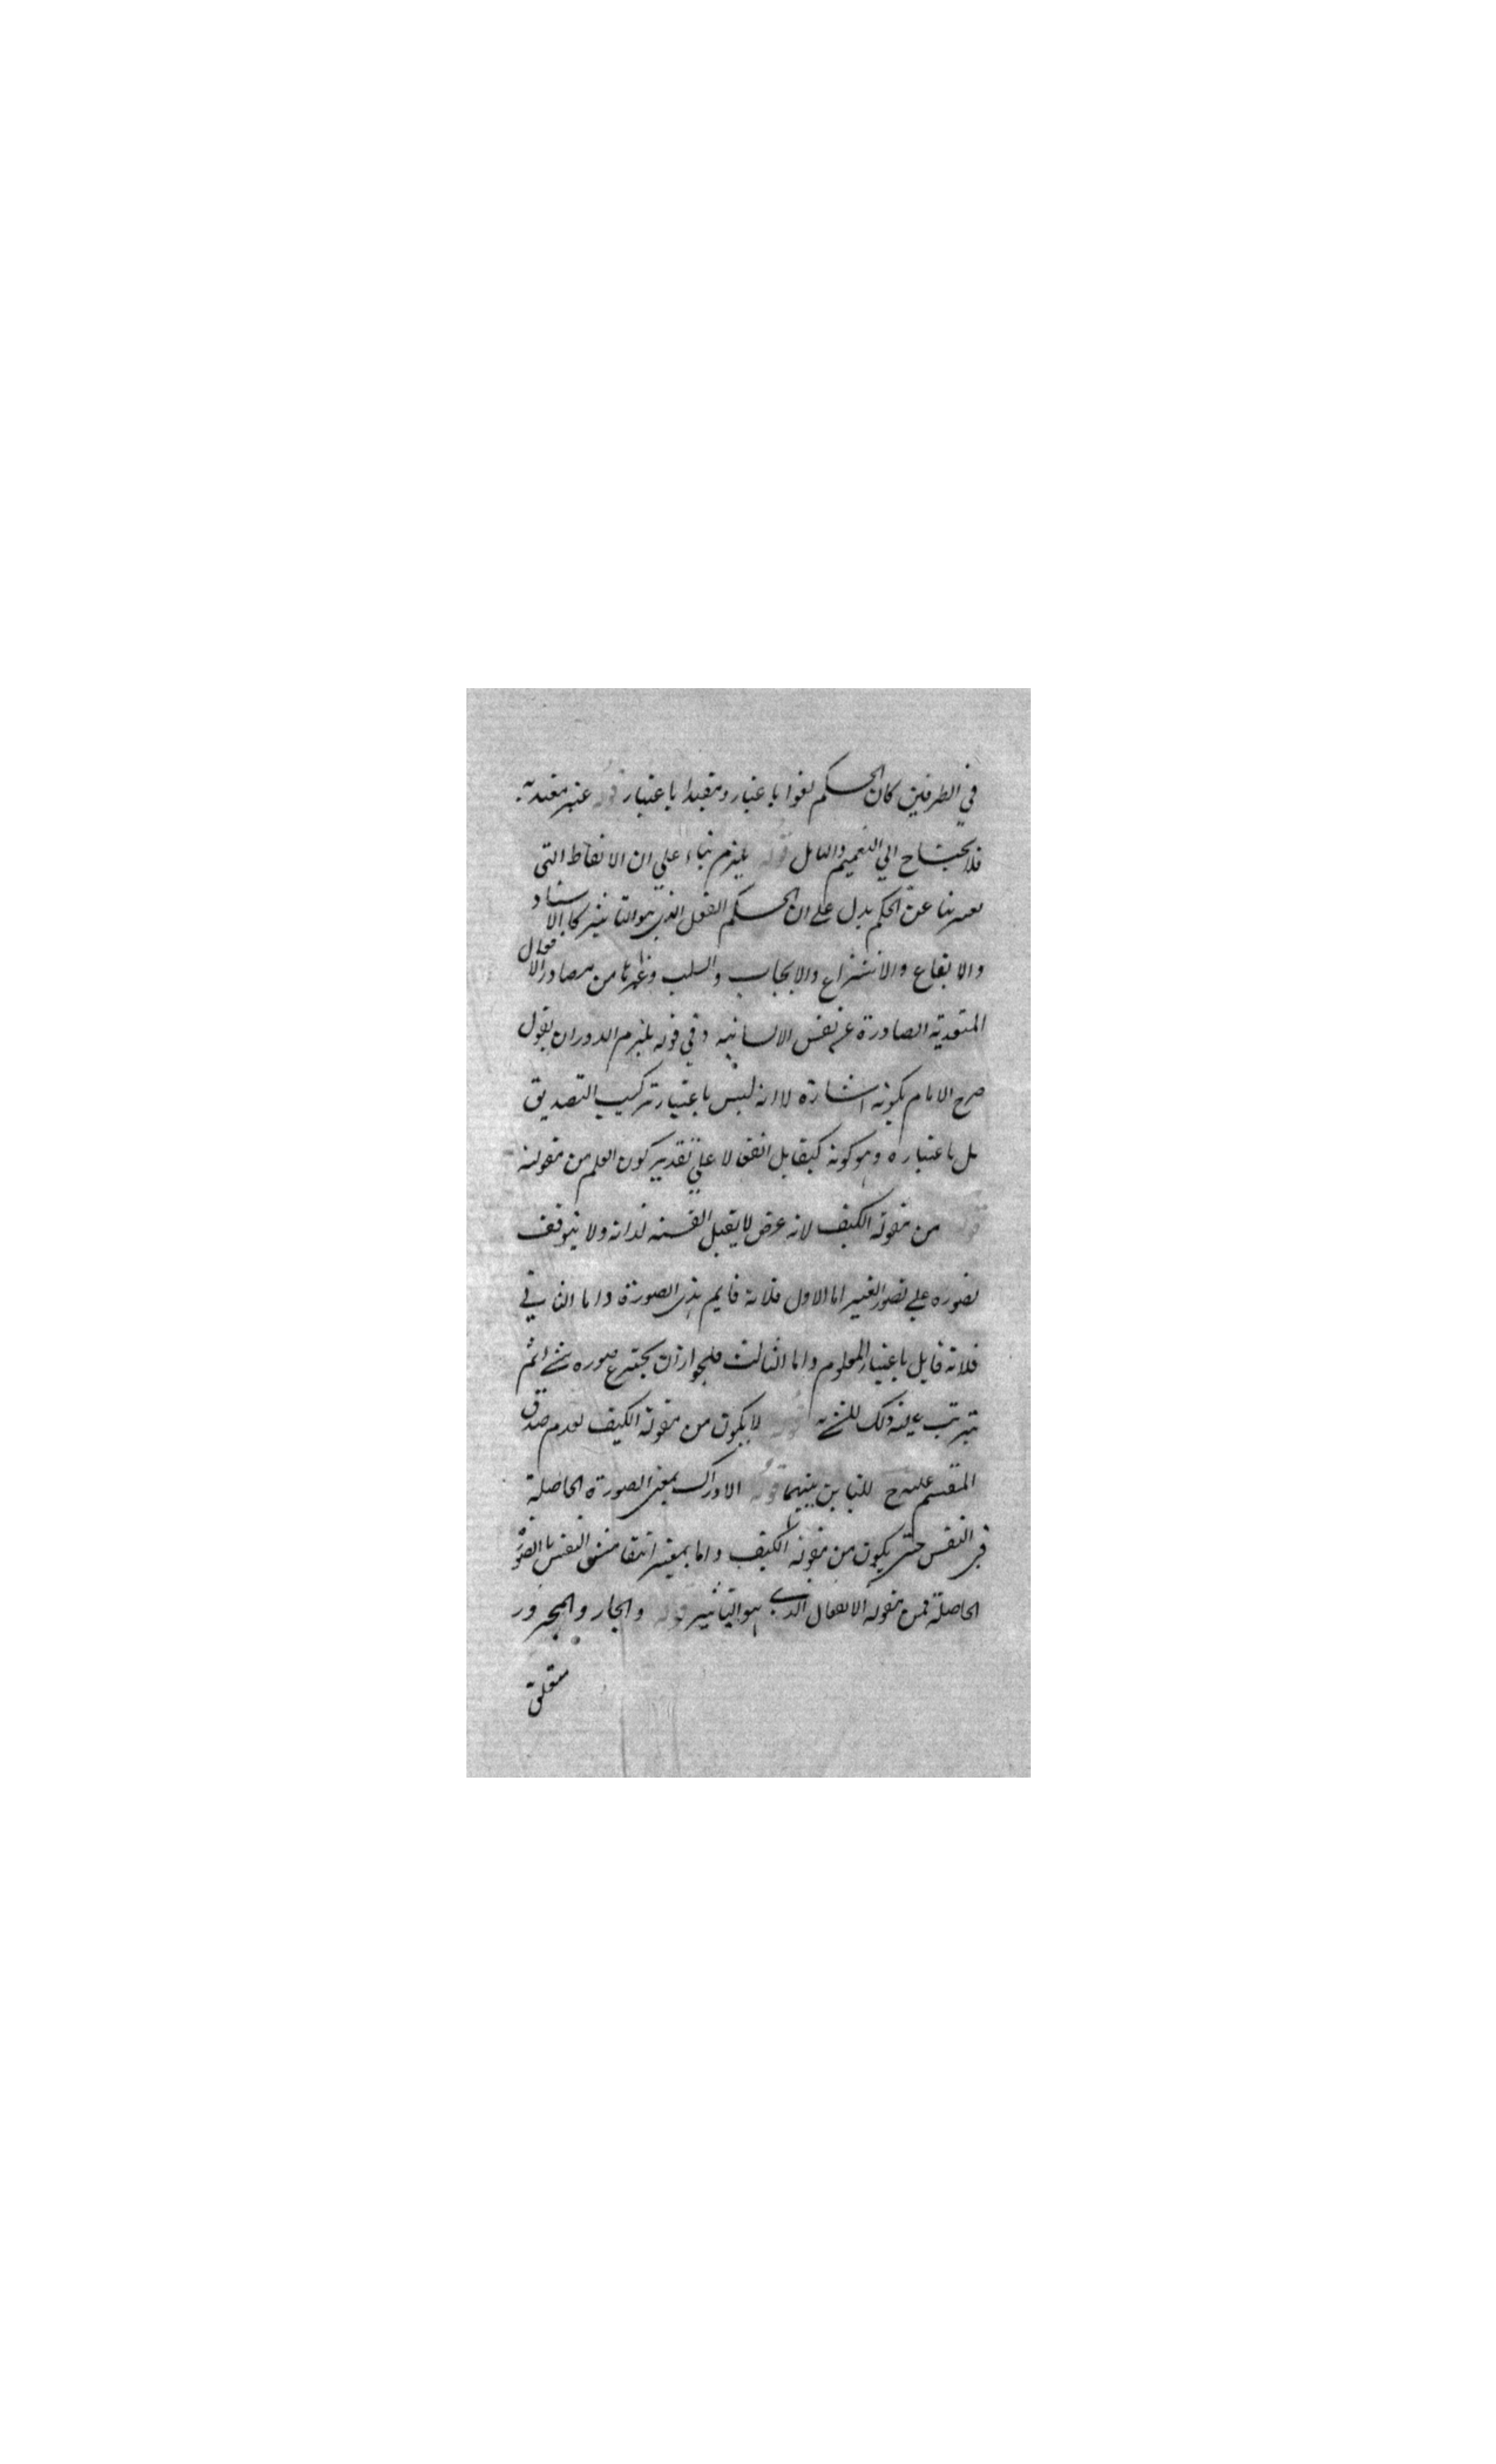 في الطرفين كان الحكم لغوا باعتبار ومقيدا باعتبار قوله غير مقيد به
فلا يحتاج الي التعميم والتامل قوله يلزم بناء علي ان الالفاظ التي
يعبر بها عن الحكم يدل علي ان الحكم الفعل الذي هو التاثير كالاسناد
والايقاع والانتزاع والايجاب والسلب وغيرها من مصادر الافعال
المتعدية الصادرة عن نفس الانسانية وفي قوله يلزم الدور ان يقول
صرح الامام بكونه اشارة لا انه ليس باعتبار تركيب التصديق
بل باعتباره وهو كونه كيفا بل انفعالا علي تقدير كون العلم من مقولته
قوله من مقولة الكيف لانه عرض لا يقبل القسمة لذاته ولا يتوقف
تصوره علي تصور الغير اما الاول فلانه قايم بذي الصورة واما الثاني
فلانه قابل باعتبار المعلوم واما الثالث فلجواز ان يخترع صورة شيء ثم
يترتب عليه ذلك الشيء قوله لا يكون من مقولة الكيف لعدم صدق
المقسم عليه ح للتباين بينهما قوله الادراك بمعني الصورة الحاصلة
في النفس حتي يكون من مقولة الكيف واما بمعني انتقاش النفس بالصور
الحاصلة فمن مقولة الانفعال الذي هو التاثير قوله والجار والمجرور
متعلق